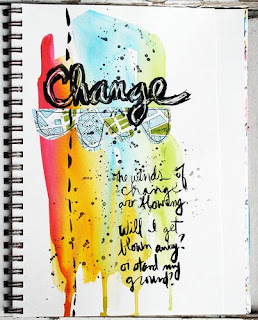 Change
the winds of
change
are blowing.
Will I get
blown away?
or stand my
ground?